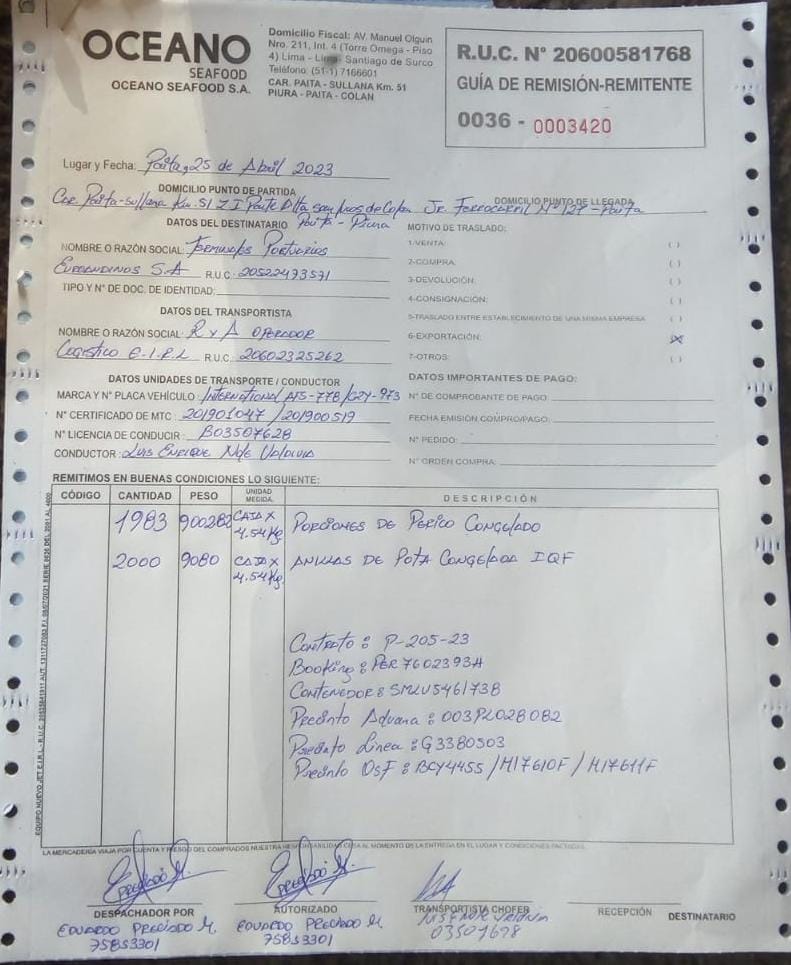 OCEANO
SEAFOOD
OCEANO SEAFOOD S.A.
Domicilio Fiscal: AV. Manuel Olguin
Nro. 211, Int. 4 (Torre Omega - Piso
4) Lima - Lima - Santiago de Surco
Teléfono: (51-1) 7166601
CAR. PAITA - SULLANA Km. 51
PIURA - PAITA - COLAN
R.U.C. N° 20600581768
GUÍA DE REMISIÓN-REMITENTE
0036 - 0003420
Lugar y Fecha: Paita, 25 de Abril 2023
DOMICILIO PUNTO DE PARTIDA
DOMICILIO PUNTO DE LLEGADA
Car. Paita-sullana Km. 51 Z I Parte Alta san lucas de Colan Jr. Ferrocarril N° 127 - Paita
Paita - Piura
DATOS DEL DESTINATARIO
MOTIVO DE TRASLADO:
NOMBRE O RAZÓN SOCIAL: Terminales Portuarios
1-VENTA: ( )
Euroandinos S.A R.U.C.: 20522473571
2-COMPRA: ( )
TIPO Y N° DE DOC. DE IDENTIDAD:
3-DEVOLUCIÓN: ( )
4-CONSIGNACIÓN: ( )
DATOS DEL TRANSPORTISTA
5-TRASLADO ENTRE ESTABLECIMIENTO DE UNA MISMA EMPRESA ( )
NOMBRE O RAZÓN SOCIAL: R y A OPERADOR
6-EXPORTACIÓN: (X)
Logístico E.I.R.L R.U.C. 20602325262
7-OTROS: ( )
DATOS UNIDADES DE TRANSPORTE / CONDUCTOR
DATOS IMPORTANTES DE PAGO:
MARCA Y N° PLACA VEHÍCULO: International ATS-778/C2Y-973
N° DE COMPROBANTE DE PAGO:
N° CERTIFICADO DE MTC: 201901047 / 201900519
FECHA EMISIÓN COMPRO/PAGO:
N° LICENCIA DE CONDUCIR: B03507628
N° PEDIDO:
CONDUCTOR: Luis Enrique Valdivia
N° ORDEN COMPRA:
REMITIMOS EN BUENAS CONDICIONES LO SIGUIENTE:
CÓDIGO CANTIDAD PESO UNIDAD MEDIDA. DESCRIPCIÓN
1983 900282 CAJA X 4.54 Kg PORCIONES DE PERICO CONGELADO
2000 9080 CAJA X 4.54 Kg ANILLAS DE POTA CONGELADA IQF
Contrato : P-205-23
Booking : PER7602393A
Contenedor : SMLU5461738
Precinto Aduana : 003PL028082
Precinto Linea : G3380503
Precinto OSF : BCY4455 / M17610F / M17611F
LA MERCADERÍA VIAJA POR CUENTA Y RIESGO DEL COMPRADOR NUESTRA RESPONSABILIDAD CESA AL MOMENTO DE LA ENTREGA EN EL LUGAR Y CONDICIONES PACTADAS.
DESPACHADOR POR
AUTORIZADO
TRANSPORTISTA CHOFER
RECEPCIÓN
DESTINATARIO
EDUARDO PRECIADO M.
75853301
EDUARDO PRECIADO M.
75853301
03507628